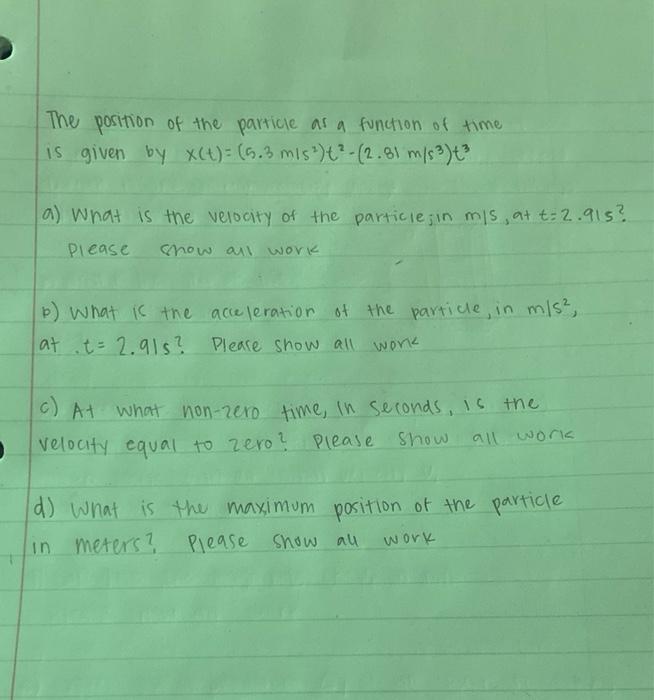 The position of the particle as a function of time
is given by x(t)=(5.3 m/s²)t²-(2.81 m/s³)t³
a) What is the velocity of the particle; in m/s, at t=2.91s?
Please show all work
b) What is the acceleration of the particle, in m/s²,
at .t= 2.91s? Please show all work
c) At what non-zero time, in seconds, is the
velocity equal to zero? Please show all work
d) What is the maximum position of the particle
in meters? Please show all work